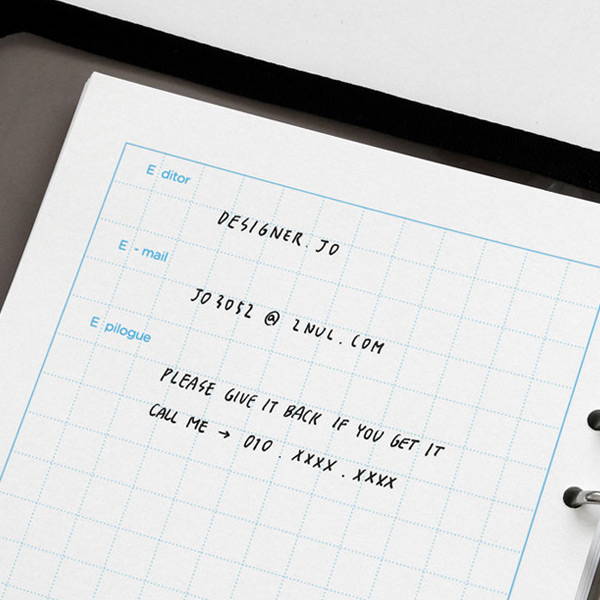 E ditor
DESIGNER. JO
E - mail
JO3052 @ 2NUL. COM
E pilogue
PLEASE GIVE IT BACK IF YOU GET IT
CALL ME → 010 . XXXX . XXXX